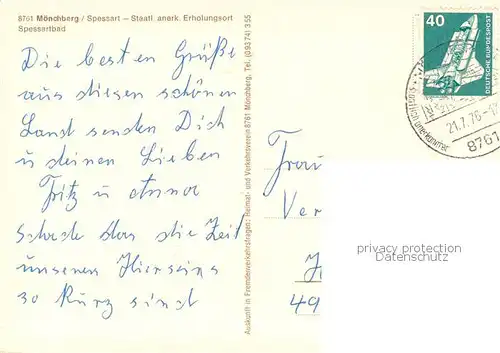 8761 Mönchberg / Spessart – Staatl. anerk. Erholungsort
Spessartbad
Die besten Grüße
aus diesen schönen
Land senden Dich
u deinen Lieben
Fritz u Anna
schade das die Zeit
unseren Hierseins
so kurz sind
Auskunft in Fremdenverkehrsfragen: Heimat- und Verkehrsverein 8761 Mönchberg, Tel. (09374) 355
40
DEUTSCHE BUNDESPOST
21.7.76
8761
Frau
Ver
49
privacy protection
Datenschutz